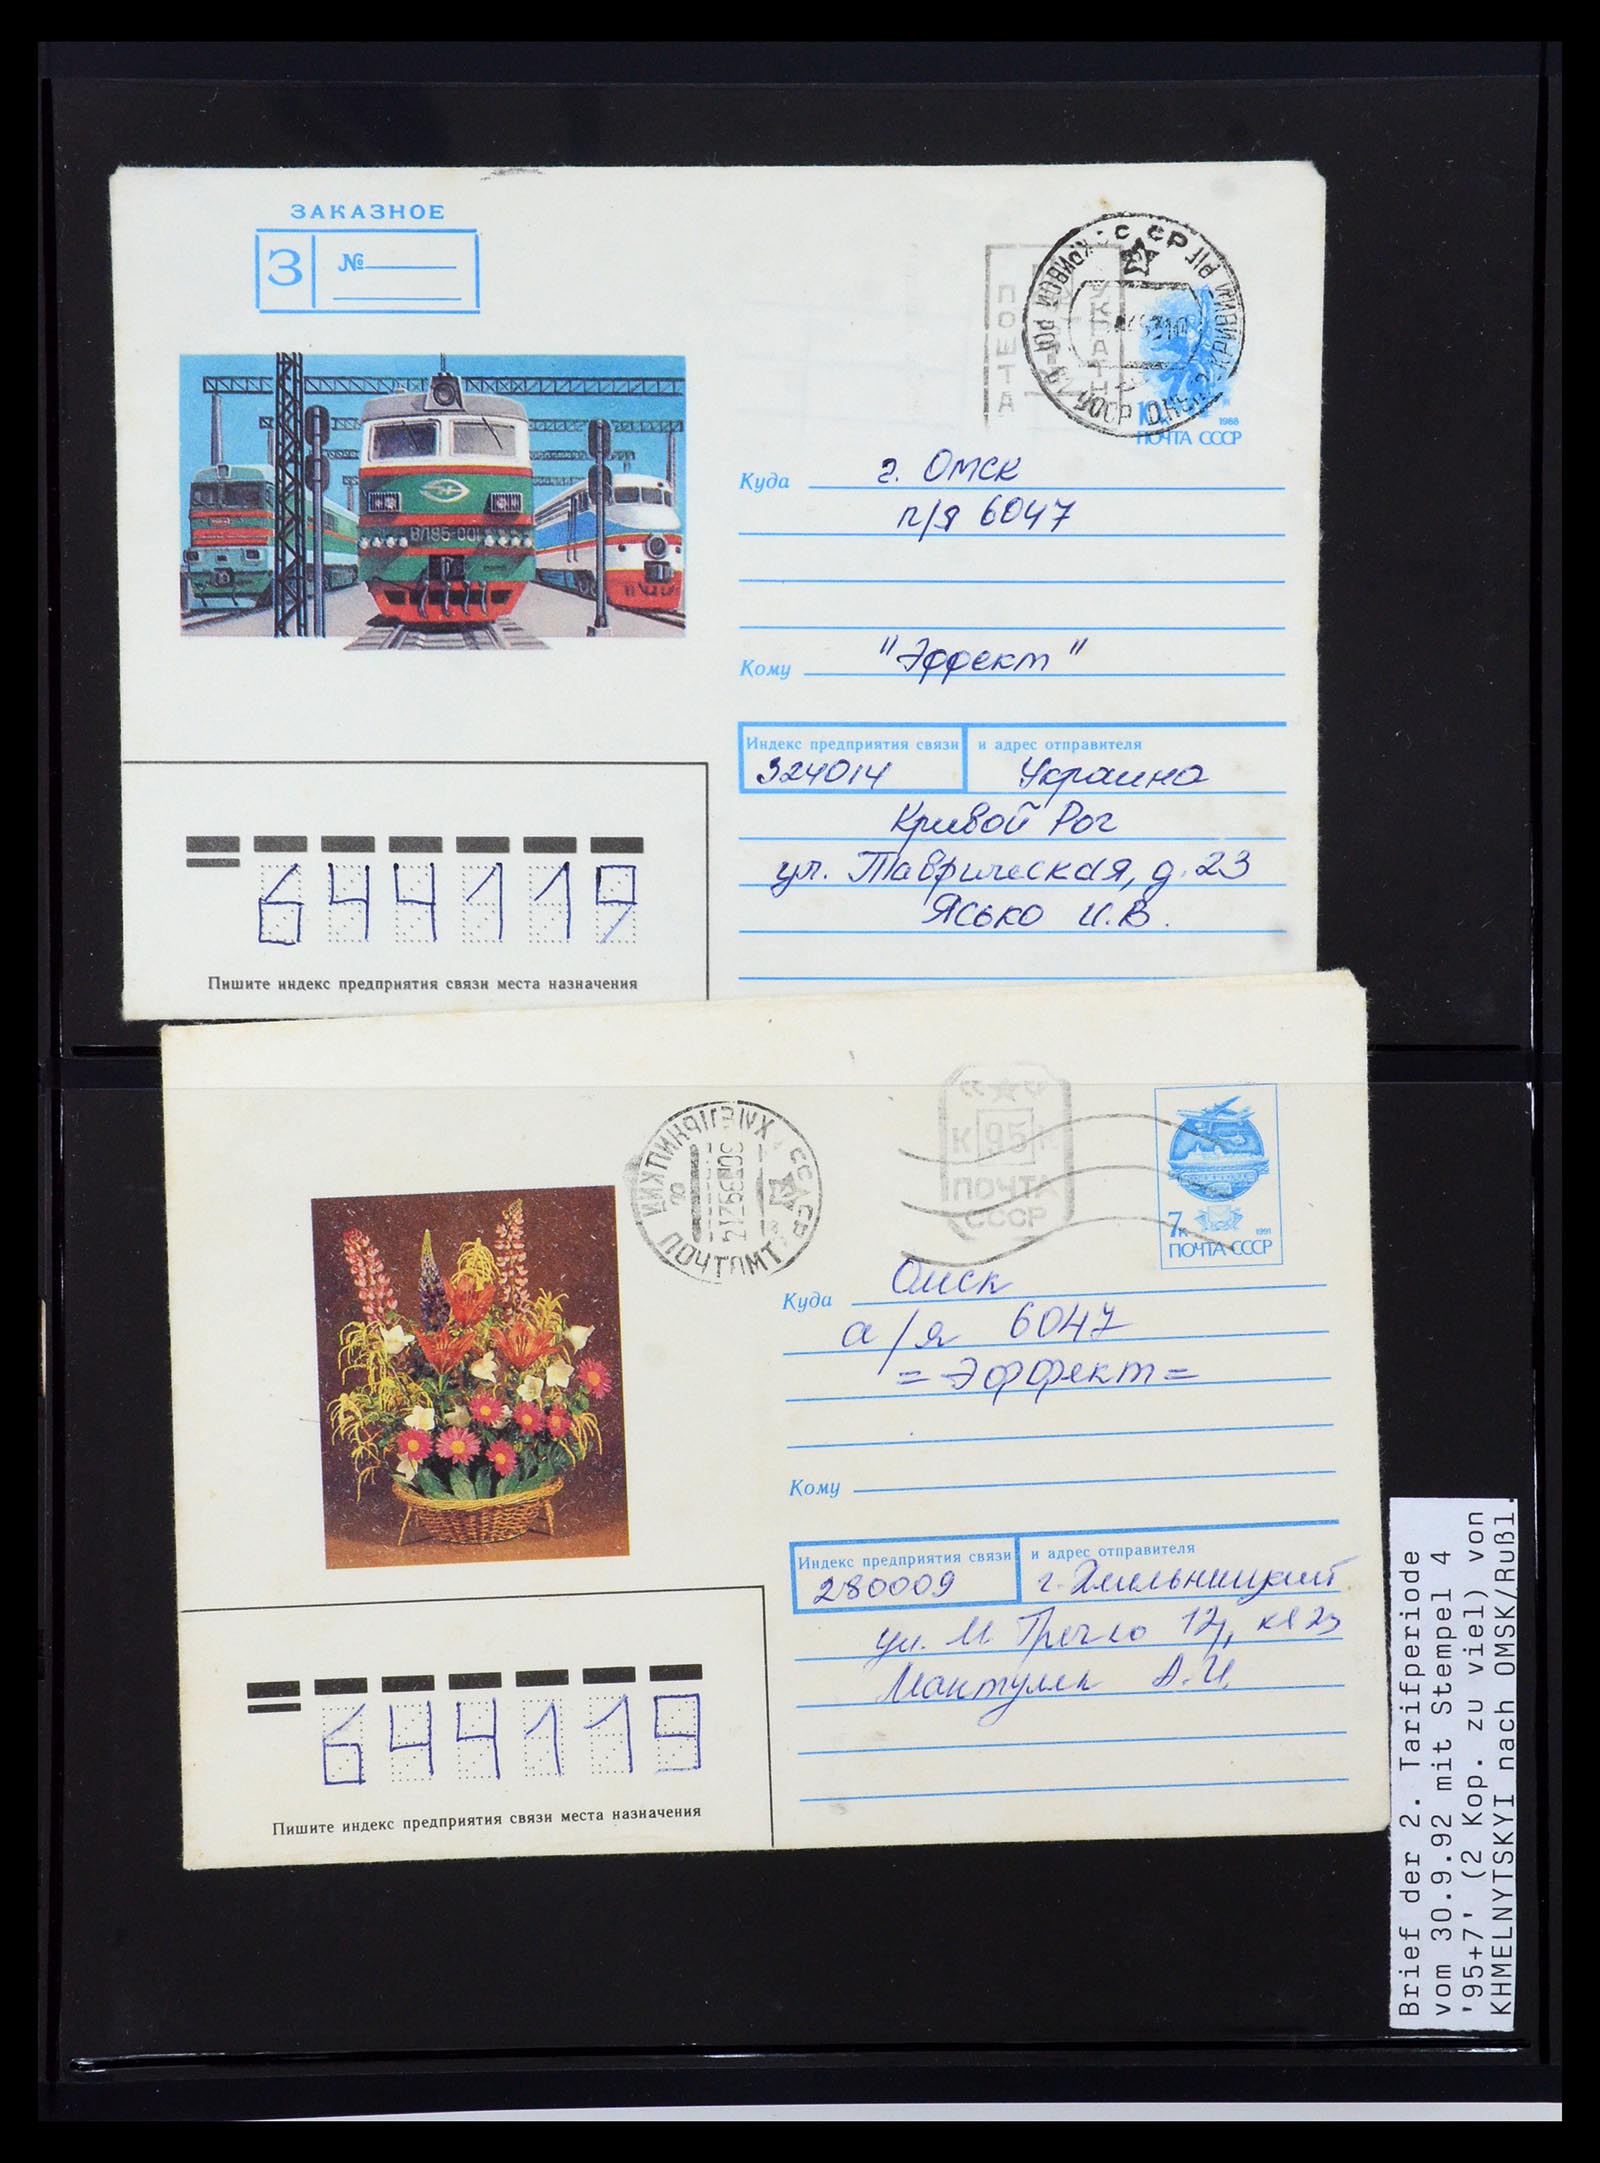 ЗАКАЗНОЕ
З №
ВЛ85-001
ПОШТА
1988
ПОЧТА СССР
Куда г. Омск
п/я 6047
Кому "Эффект"
Индекс предприятия связи и адрес отправителя
324014 Украина
Кривой Рог
ул. Таврическая, д. 23
Ясько И.В.
644119
Пишите индекс предприятия связи места назначения
ПОЧТАМТ
К 95 К
ПОЧТА
СССР
7к 1991
ПОЧТА СССР
Куда Омск
а/я 6047
=Эффект=
Кому
Индекс предприятия связи и адрес отправителя
280009 г. Хмельницкий
ул. М. Гречко
А.И.
644119
Пишите индекс предприятия связи места назначения
Brief der 2. Tarifperiode
vom 30.9.92 mit Stempel 4
'95+7' (2 Kop. zu viel) von
KHMELNYTSKYI nach OMSK/Rußl.